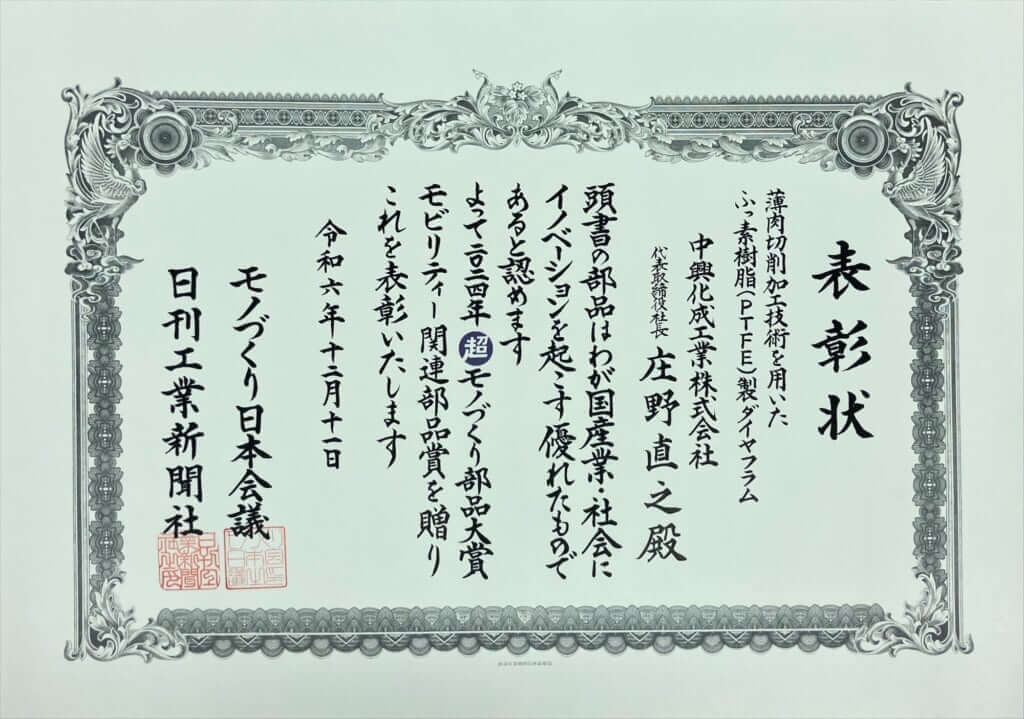 表彰状
薄肉切削加工技術を用いた
ふっ素樹脂(PTFE)製ダイヤフラム
中興化成工業株式会社
代表取締役社長 庄野直之殿
頭書の部品はわが国産業・社会に
イノベーションを起こす優れたもので
あると認めます
よって二〇二四年超モノづくり部品大賞
モビリティー関連部品賞を贈り
これを表彰いたします
令和六年十二月十一日
モノづくり日本会議
日刊工業新聞社